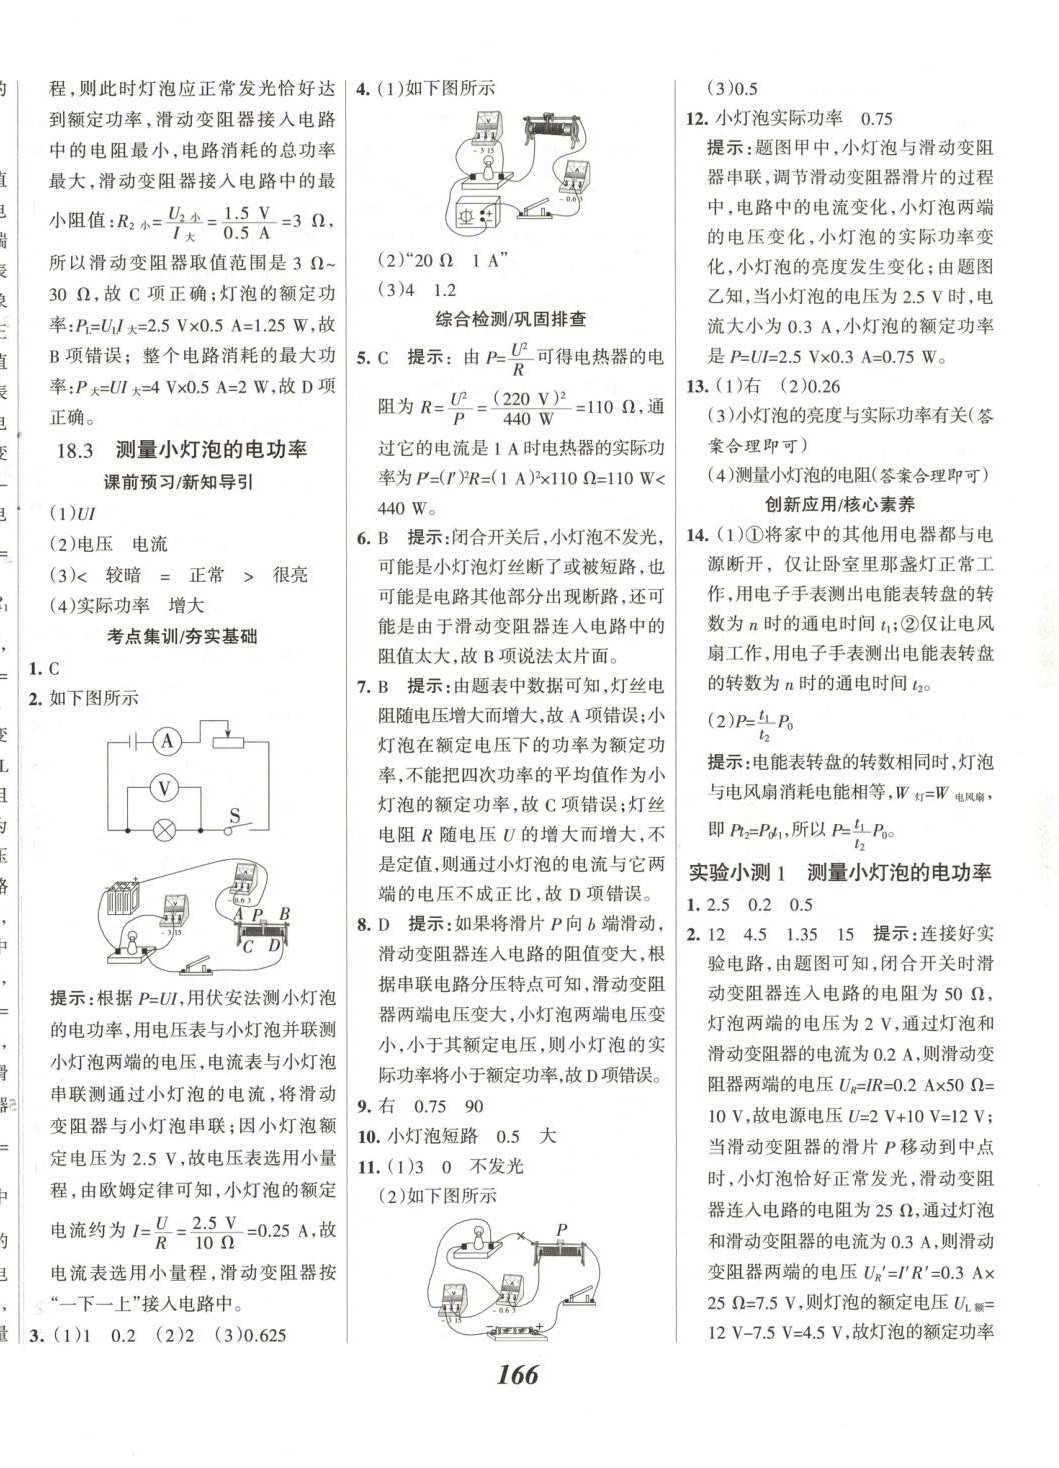 程,则此时灯泡应正常发光恰好达
到额定功率,滑动变阻器接入电路
中的电阻最小,电路消耗的总功率
最大,滑动变阻器接入电路中的最
小阻值:R₂小=U₂小/I大=1.5 V/0.5 A=3 Ω,
所以滑动变阻器取值范围是 3 Ω~
30 Ω,故 C 项正确;灯泡的额定功
率:P_L=U_L I大=2.5 V×0.5 A=1.25 W,故
B 项错误; 整个电路消耗的最大功
率:P大=UI大=4 V×0.5 A=2 W,故 D 项
正确。
18.3 测量小灯泡的电功率
课前预习/新知导引
(1)UI
(2)电压 电流
(3)< 较暗 = 正常 > 很亮
(4)实际功率 增大
考点集训/夯实基础
1. C
2. 如下图所示
A
V
S
- 0.6 3
- 3 15
A P B
C D
提示:根据 P=UI,用伏安法测小灯泡
的电功率,用电压表与小灯泡并联测
小灯泡两端的电压,电流表与小灯泡
串联测通过小灯泡的电流,将滑动
变阻器与小灯泡串联;因小灯泡额
定电压为 2.5 V,故电压表选用小量
程,由欧姆定律可知,小灯泡的额定
电流约为 I=U/R=2.5 V/10 Ω=0.25 A,故
电流表选用小量程,滑动变阻器按
“一下一上”接入电路中。
3. (1)1 0.2 (2)2 (3)0.625
4. (1)如下图所示
- 3 15
- 0.6 3
(2)“20 Ω 1 A”
(3)4 1.2
综合检测/巩固排查
5. C 提示: 由 P=U²/R可得电热器的电
阻为 R=U²/P=(220 V)²/440 W=110 Ω,通
过它的电流是 1 A 时电热器的实际功
率为 P′=(I′)²R=(1 A)²×110 Ω=110 W<
440 W。
6. B 提示:闭合开关后,小灯泡不发光,
可能是小灯泡灯丝断了或被短路,也
可能是电路其他部分出现断路,还可
能是由于滑动变阻器连入电路中的
阻值太大,故 B 项说法太片面。
7. B 提示:由题表中数据可知,灯丝电
阻随电压增大而增大,故 A 项错误;小
灯泡在额定电压下的功率为额定功
率,不能把四次功率的平均值作为小
灯泡的额定功率,故 C 项错误;灯丝
电阻 R 随电压 U 的增大而增大,不
是定值,则通过小灯泡的电流与它两
端的电压不成正比,故 D 项错误。
8. D 提示:如果将滑片 P 向 b 端滑动,
滑动变阻器连入电路的阻值变大,根
据串联电路分压特点可知,滑动变阻
器两端电压变大,小灯泡两端电压变
小,小于其额定电压,则小灯泡的实
际功率将小于额定功率,故 D 项错误。
9. 右 0.75 90
10. 小灯泡短路 0.5 大
11. (1)3 0 不发光
(2)如下图所示
P
×
- 3 15
- 0.6 3
- +
(3)0.5
12. 小灯泡实际功率 0.75
提示:题图甲中,小灯泡与滑动变阻
器串联,调节滑动变阻器滑片的过程
中,电路中的电流变化,小灯泡两端
的电压变化,小灯泡的实际功率变
化,小灯泡的亮度发生变化;由题图
乙知,当小灯泡的电压为 2.5 V 时,电
流大小为 0.3 A,小灯泡的额定功率
是 P=UI=2.5 V×0.3 A=0.75 W。
13. (1)右 (2)0.26
(3)小灯泡的亮度与实际功率有关(答
案合理即可)
(4)测量小灯泡的电阻(答案合理即可)
创新应用/核心素养
14. (1)①将家中的其他用电器都与电
源断开, 仅让卧室里那盏灯正常工
作,用电子手表测出电能表转盘的转
数为 n 时的通电时间 t₁;②仅让电风
扇工作,用电子手表测出电能表转盘
的转数为 n 时的通电时间 t₂。
(2)P=t₁/t₂ P₀
提示:电能表转盘的转数相同时,灯泡
与电风扇消耗电能相等,W灯=W电风扇,
即 Pt₂=P₀t₁,所以 P=t₁/t₂ P₀。
实验小测 1 测量小灯泡的电功率
1. 2.5 0.2 0.5
2. 12 4.5 1.35 15 提示:连接好实
验电路,由题图可知,闭合开关时滑
动变阻器连入电路的电阻为 50 Ω,
灯泡两端的电压为 2 V,通过灯泡和
滑动变阻器的电流为 0.2 A,则滑动变
阻器两端的电压 U_R=IR=0.2 A×50 Ω=
10 V,故电源电压 U=2 V+10 V=12 V;
当滑动变阻器的滑片 P 移动到中点
时,小灯泡恰好正常发光,滑动变阻
器连入电路的电阻为 25 Ω,通过灯泡
和滑动变阻器的电流为 0.3 A,则滑动
变阻器两端的电压 U_R′=I′R′=0.3 A×
25 Ω=7.5 V,则灯泡的额定电压 U_L额=
12 V-7.5 V=4.5 V,故灯泡的额定功率
166